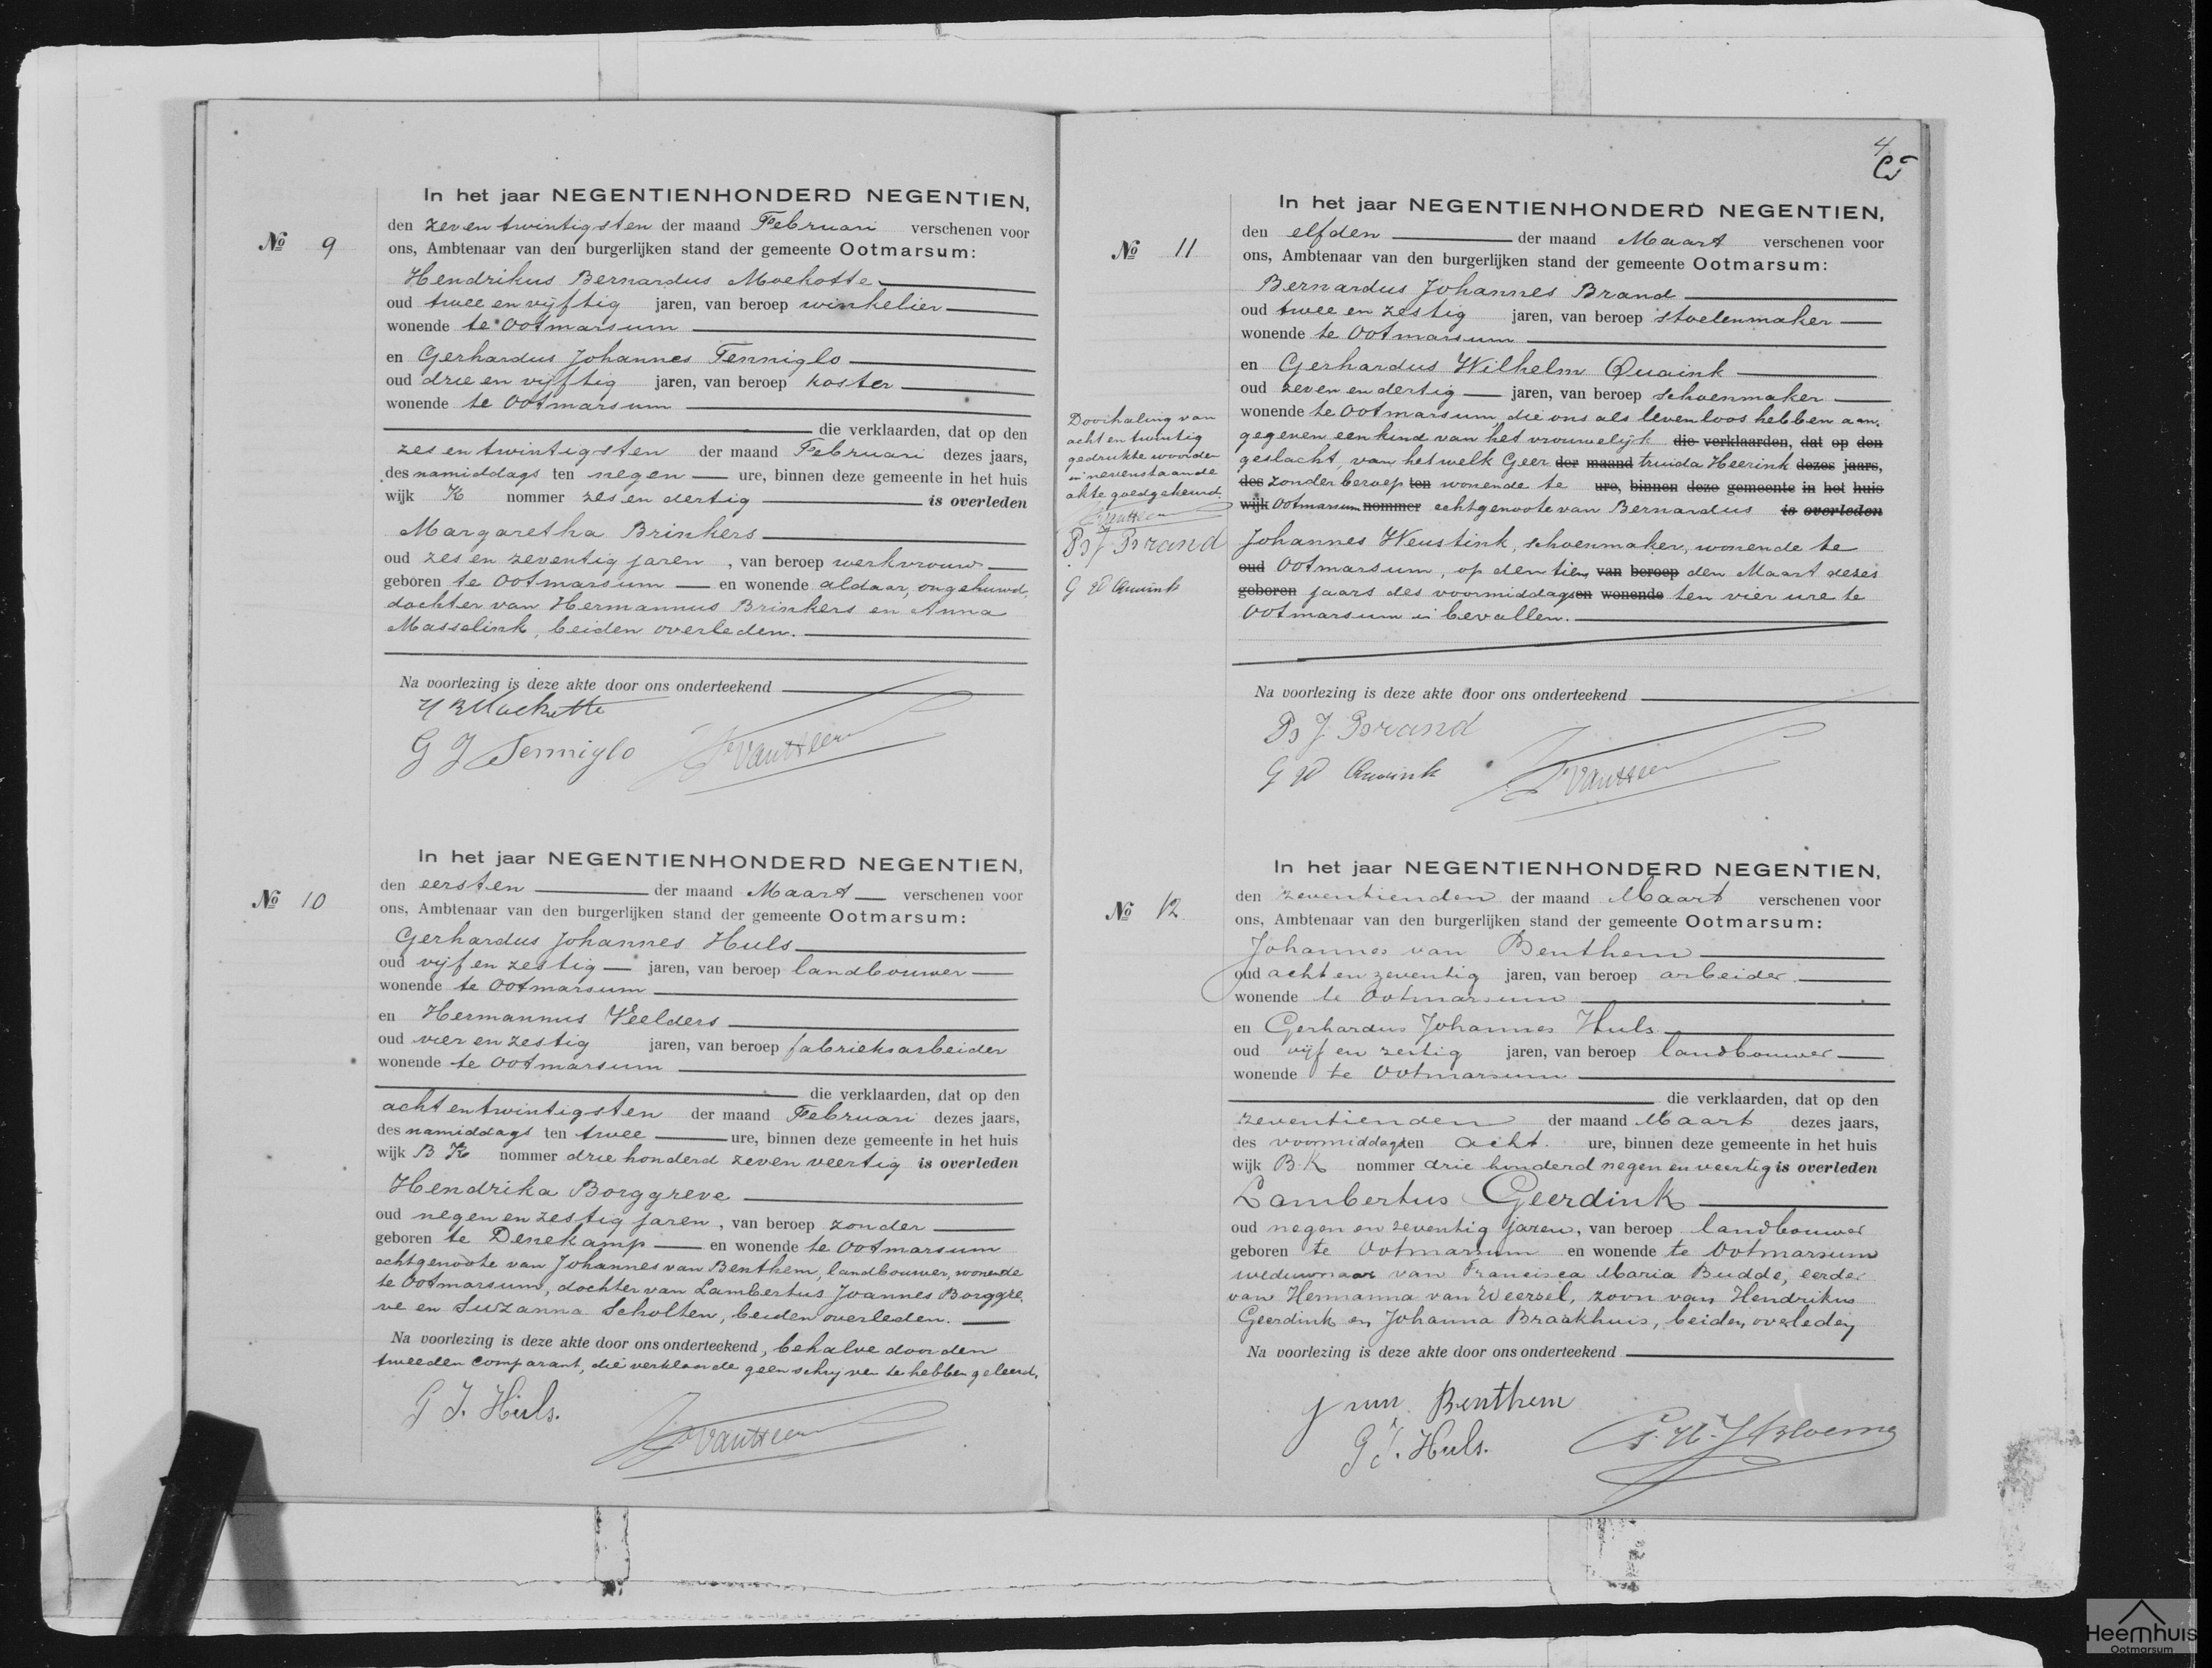 In het jaar NEGENTIENHONDERD NEGENTIEN,
den zeven twintigsten der maand Februari verschenen voor
No 9 ons, Ambtenaar van den burgerlijken stand der gemeente Ootmarsum:
Hendrikus Bernardus Moekotte
oud twee en vijftig jaren, van beroep winkelier
wonende te Ootmarsum
en Gerhardus Johannes Tenniglo
oud drie en vijftig jaren, van beroep koster
wonende te Ootmarsum
die verklaarden, dat op den
zes en twintigsten der maand Februari dezes jaars,
des namiddags ten negen ure, binnen deze gemeente in het huis
wijk K nommer zes en dertig is overleden
Margaretha Brinkers
oud zes en zeventig jaren, van beroep werkvrouw
geboren te Ootmarsum en wonende aldaar, ongehuwd,
dochter van Hermannus Brinkers en Anna
Masselink, beiden overleden.
Na voorlezing is deze akte door ons onderteekend
H B Moekotte
G J Tenniglo
In het jaar NEGENTIENHONDERD NEGENTIEN,
den eersten der maand Maart verschenen voor
No 10 ons, Ambtenaar van den burgerlijken stand der gemeente Ootmarsum:
Gerhardus Johannes Huls
oud vijf en zestig jaren, van beroep landbouwer
wonende te Ootmarsum
en Hermannus Veelders
oud vier en zestig jaren, van beroep fabrieksarbeider
wonende te Ootmarsum
die verklaarden, dat op den
acht en twintigsten der maand Februari dezes jaars,
des namiddags ten twee ure, binnen deze gemeente in het huis
wijk B K nommer drie honderd zeven veertig is overleden
Hendrika Borggreve
oud negen en zestig jaren, van beroep zonder
geboren te Denekamp en wonende te Ootmarsum
echtgenoote van Johannes van Benthem, landbouwer, wonende
te Ootmarsum, dochter van Lambertus Joannes Borggre
ve en Suzanna Scholten, beiden overleden.
Na voorlezing is deze akte door ons onderteekend, behalve door den
tweeden comparant, die verklaarde geen schrijven te hebben geleerd.
G J. Huls.
4
In het jaar NEGENTIENHONDERD NEGENTIEN,
den elfden der maand Maart verschenen voor
No 11 ons, Ambtenaar van den burgerlijken stand der gemeente Ootmarsum:
Bernardus Johannes Brand
oud twee en zestig jaren, van beroep stoelenmaker
wonende te Ootmarsum
en Gerhardus Wilhelm Quaink
oud zeven en dertig jaren, van beroep schoenmaker
wonende te Ootmarsum, die ons als levenloos hebben aan,
gegeven een kind van het vrouwelijk die verklaarden, dat op den
geslacht, van hetwelk Geer der maand truida Heerink dezes jaars,
des zonder beroep ten wonende te ure, binnen deze gemeente in het huis
wijk Ootmarsum nommer echtgenoote van Bernardus is overleden
Johannes Weustink, schoenmaker, wonende te
oud Ootmarsum, op den tien, van beroep den Maart dezes
geboren jaars des voormiddags en wonende ten vier ure te
Ootmarsum is bevallen.
Doorhaling van
acht en twintig
gedrukte woorden
in nevenstaande
akte goedgekeurd.
B J Brand
G W Quaink
Na voorlezing is deze akte door ons onderteekend
B J Brand
G W Quaink
In het jaar NEGENTIENHONDERD NEGENTIEN,
den zeventienden der maand Maart verschenen voor
No 12 ons, Ambtenaar van den burgerlijken stand der gemeente Ootmarsum:
Johannes van Benthem
oud acht en zeventig jaren, van beroep arbeider
wonende te Ootmarsum
en Gerhardus Johannes Huls
oud vijf en zestig jaren, van beroep landbouwer
wonende te Ootmarsum
die verklaarden, dat op den
zeventienden der maand Maart dezes jaars,
des voormiddags ten acht ure, binnen deze gemeente in het huis
wijk B. K nommer drie honderd negen en veertig is overleden
Lambertus Geerdink
oud negen en zeventig jaren, van beroep landbouwer
geboren te Ootmarsum en wonende te Ootmarsum
weduwnaar van Francisca Maria Budde, eerder
van Hermanna van Weersel, zoon van Hendrikus
Geerdink en Johanna Braakhuis, beiden overleden
Na voorlezing is deze akte door ons onderteekend
J van Benthem
G J. Huls.
Heemhuis
Ootmarsum